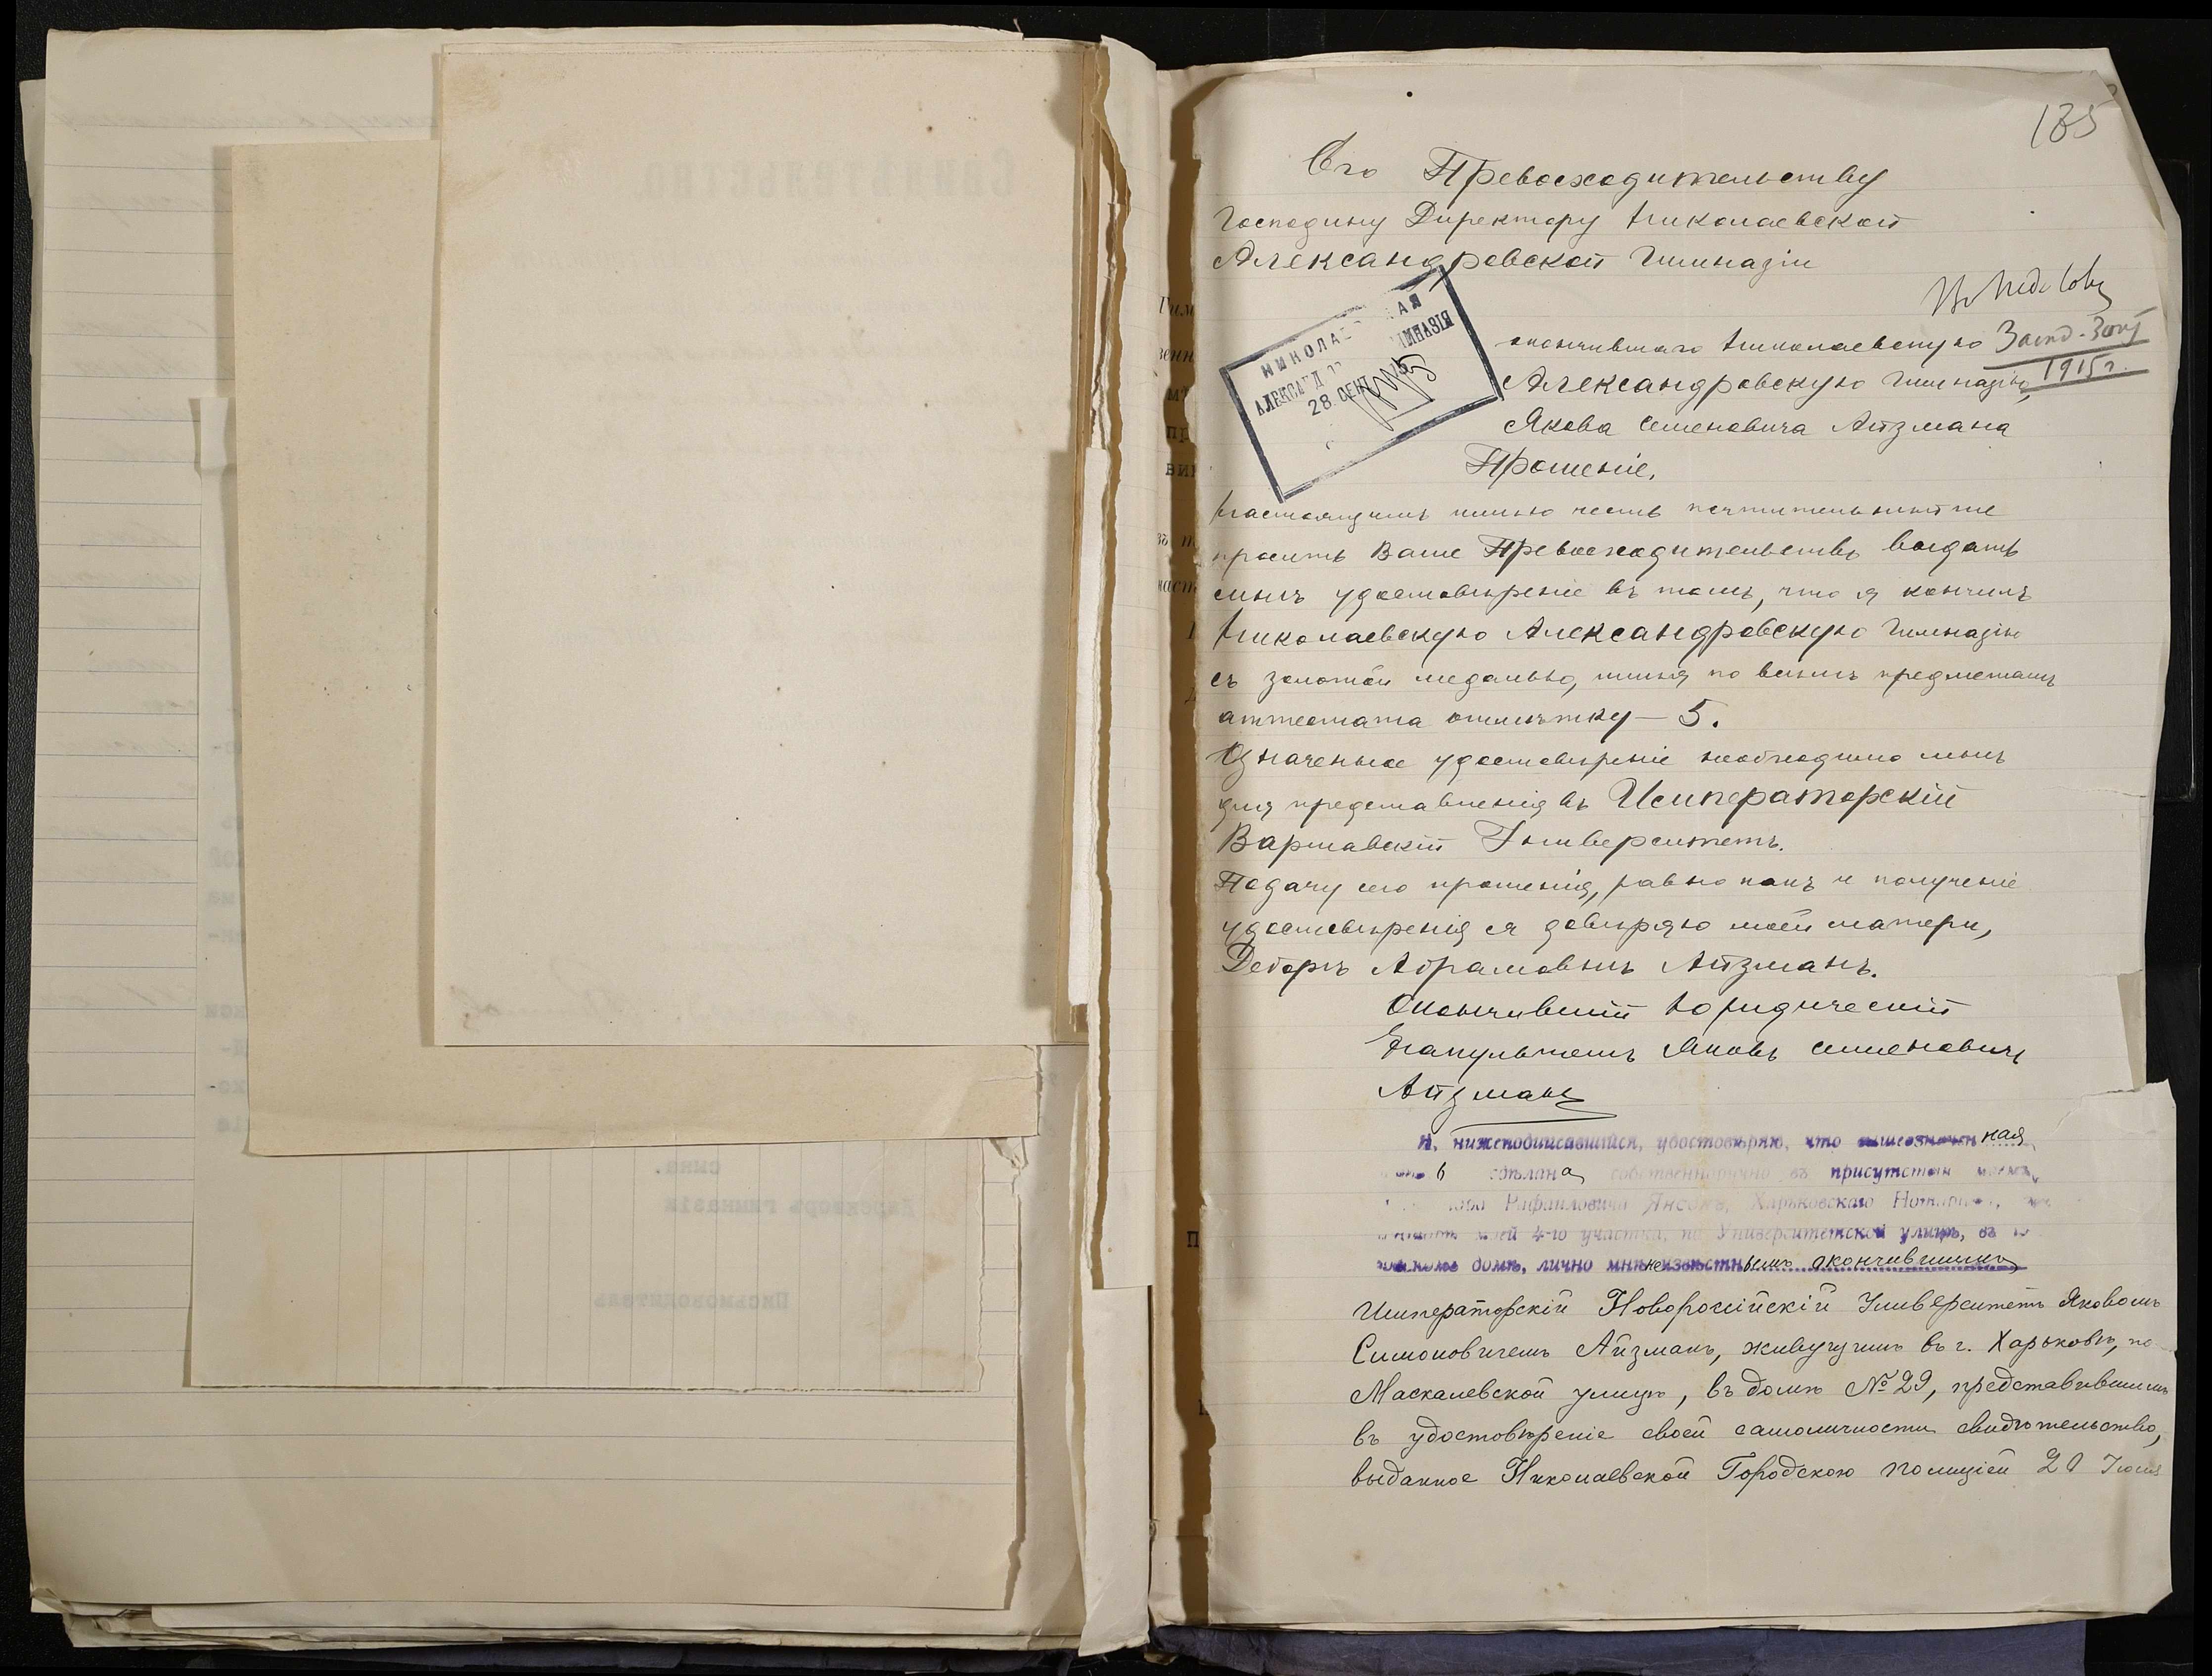 135
Его Превосходительству
Господину Директору Николаевской
Александровской Гимназіи
окончившаго Николаевскую
1915 г.
Александровскую Гимназію,
Якова Семеновича Айзмана
НИКОЛА КАЯ
АЛЕКСАНД ГИМНАЗІЯ
28 СЕНТ 1915
Прошеніе.
Настоящимъ имѣю честь почтительнѣйше
просить Ваше Превосходительство выдать
мнѣ удостовѣреніе въ томъ, что я кончилъ
Николаевскую Александровскую Гимназію
съ золотой медалью, имѣя по всѣмъ предметамъ
аттестата отмѣтку — 5.
Означенное удостовѣреніе необходимо мнѣ
для представленія въ Императорскій
Варшавскій Университетъ.
Подачу сего прошенія, равно какъ и полученіе
удостовѣренія я довѣряю моей матери,
Деборѣ Абрамовнѣ Айзманъ.
Окончившій юридическій
факультетъ Яковъ Семеновичъ
Айзманъ
Я, нижеподписавшійся, удостовѣряю, что вышеозначенная
сдѣлана собственноручно въ присутствіи моемъ,
Рафаиловича Янсонъ, Харьковскаго Нотаріуса,
моей 4-го участка, по Университетской улицѣ, въ
домѣ, лично мнѣ неизвѣстнымъ окончившимъ
Императорскій Новороссійскій Университетъ Яковомъ
Симоновичемъ Айзманъ, живущимъ въ г. Харьковѣ, по
Москалевской улицѣ, въ домѣ № 29, представившимъ
въ удостовѣреніе своей самоличности свидѣтельство,
выданное Николаевской Городскою Полиціей 20 Іюля
сына.
Директоръ гимназіи
Письмоводитель